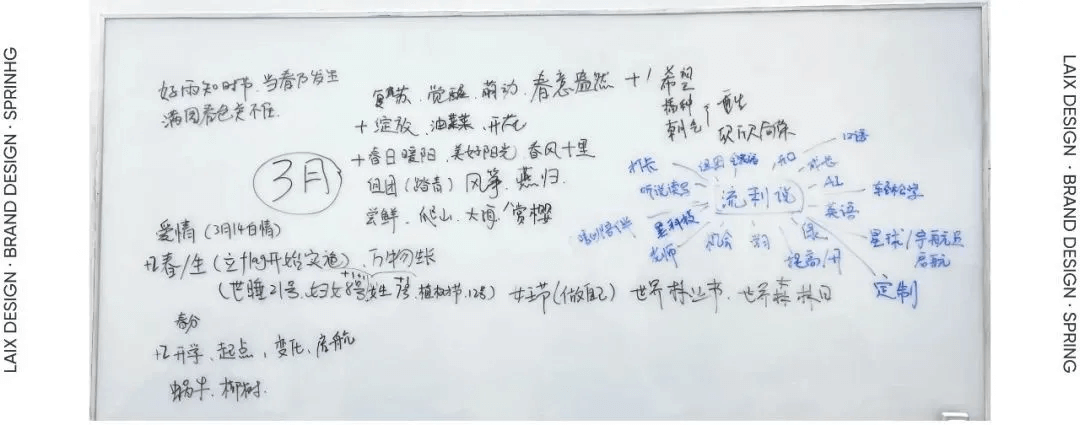 LAIX DESIGN · BRAND DESIGN · SPRINHG
好雨知时节,当春乃发生
满园春色关不住
复苏、觉醒、萌动、春意盎然 + 希望
播种
朝气
再生
欣欣向荣
+ 绽放、油菜菜、开花
+ 春日暖阳、美好阳光、春风十里
组团(踏青)风筝、燕归.
尝鲜、爬山、大海、赏樱
3月
爱情(3月14白情)
春/生(立flag开始实施)、万物生长
(世睡21号、妇女8号、女生7号、植树节、12号) 女王节(做自己) 世界 书、世界森林日
春分
开学、起点、变化、启航
蜗牛、柳树.
流利说
打卡
组团
口语
成长
AI
轻松学
听说读写
英语
黑科技
星球/导航员
启航
老师
机会
绿
提高/升
定制
LAIX DESIGN · BRAND DESIGN · SPRING